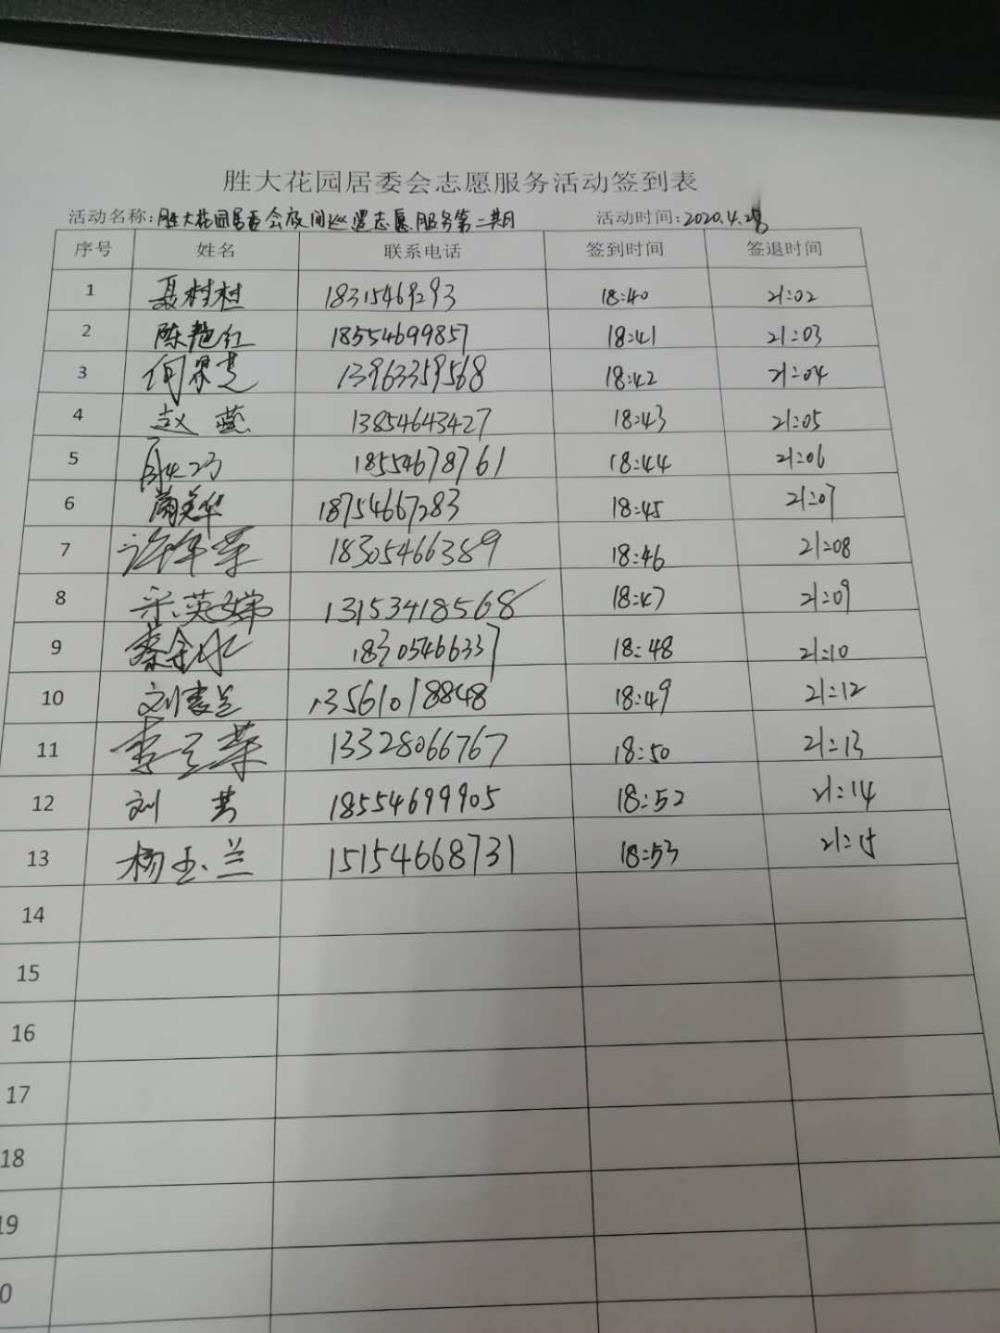 胜大花园居委会志愿服务活动签到表
活动名称:胜大花园居委会夜间巡逻志愿服务第二期 活动时间:2020.4.28
序号 姓名 联系电话 签到时间 签退时间
1 聂村村 18315469293 18:40 21:02
2 陈艳红 18554699857 18:41 21:03
3 13963359568 18:42 21:04
4 赵燕 13854643427 18:43 21:05
5 18554678761 18:44 21:06
6 18754667283 18:45 21:07
7 18305466389 18:46 21:08
8 13153418568 18:47 21:09
9 18305466337 18:48 21:10
10 13561018848 18:49 21:12
11 13328066767 18:50 21:13
12 刘芸 18554699905 18:52 21:14
13 杨玉兰 15154668731 18:53 21:15
14
15
16
17
18
19
0